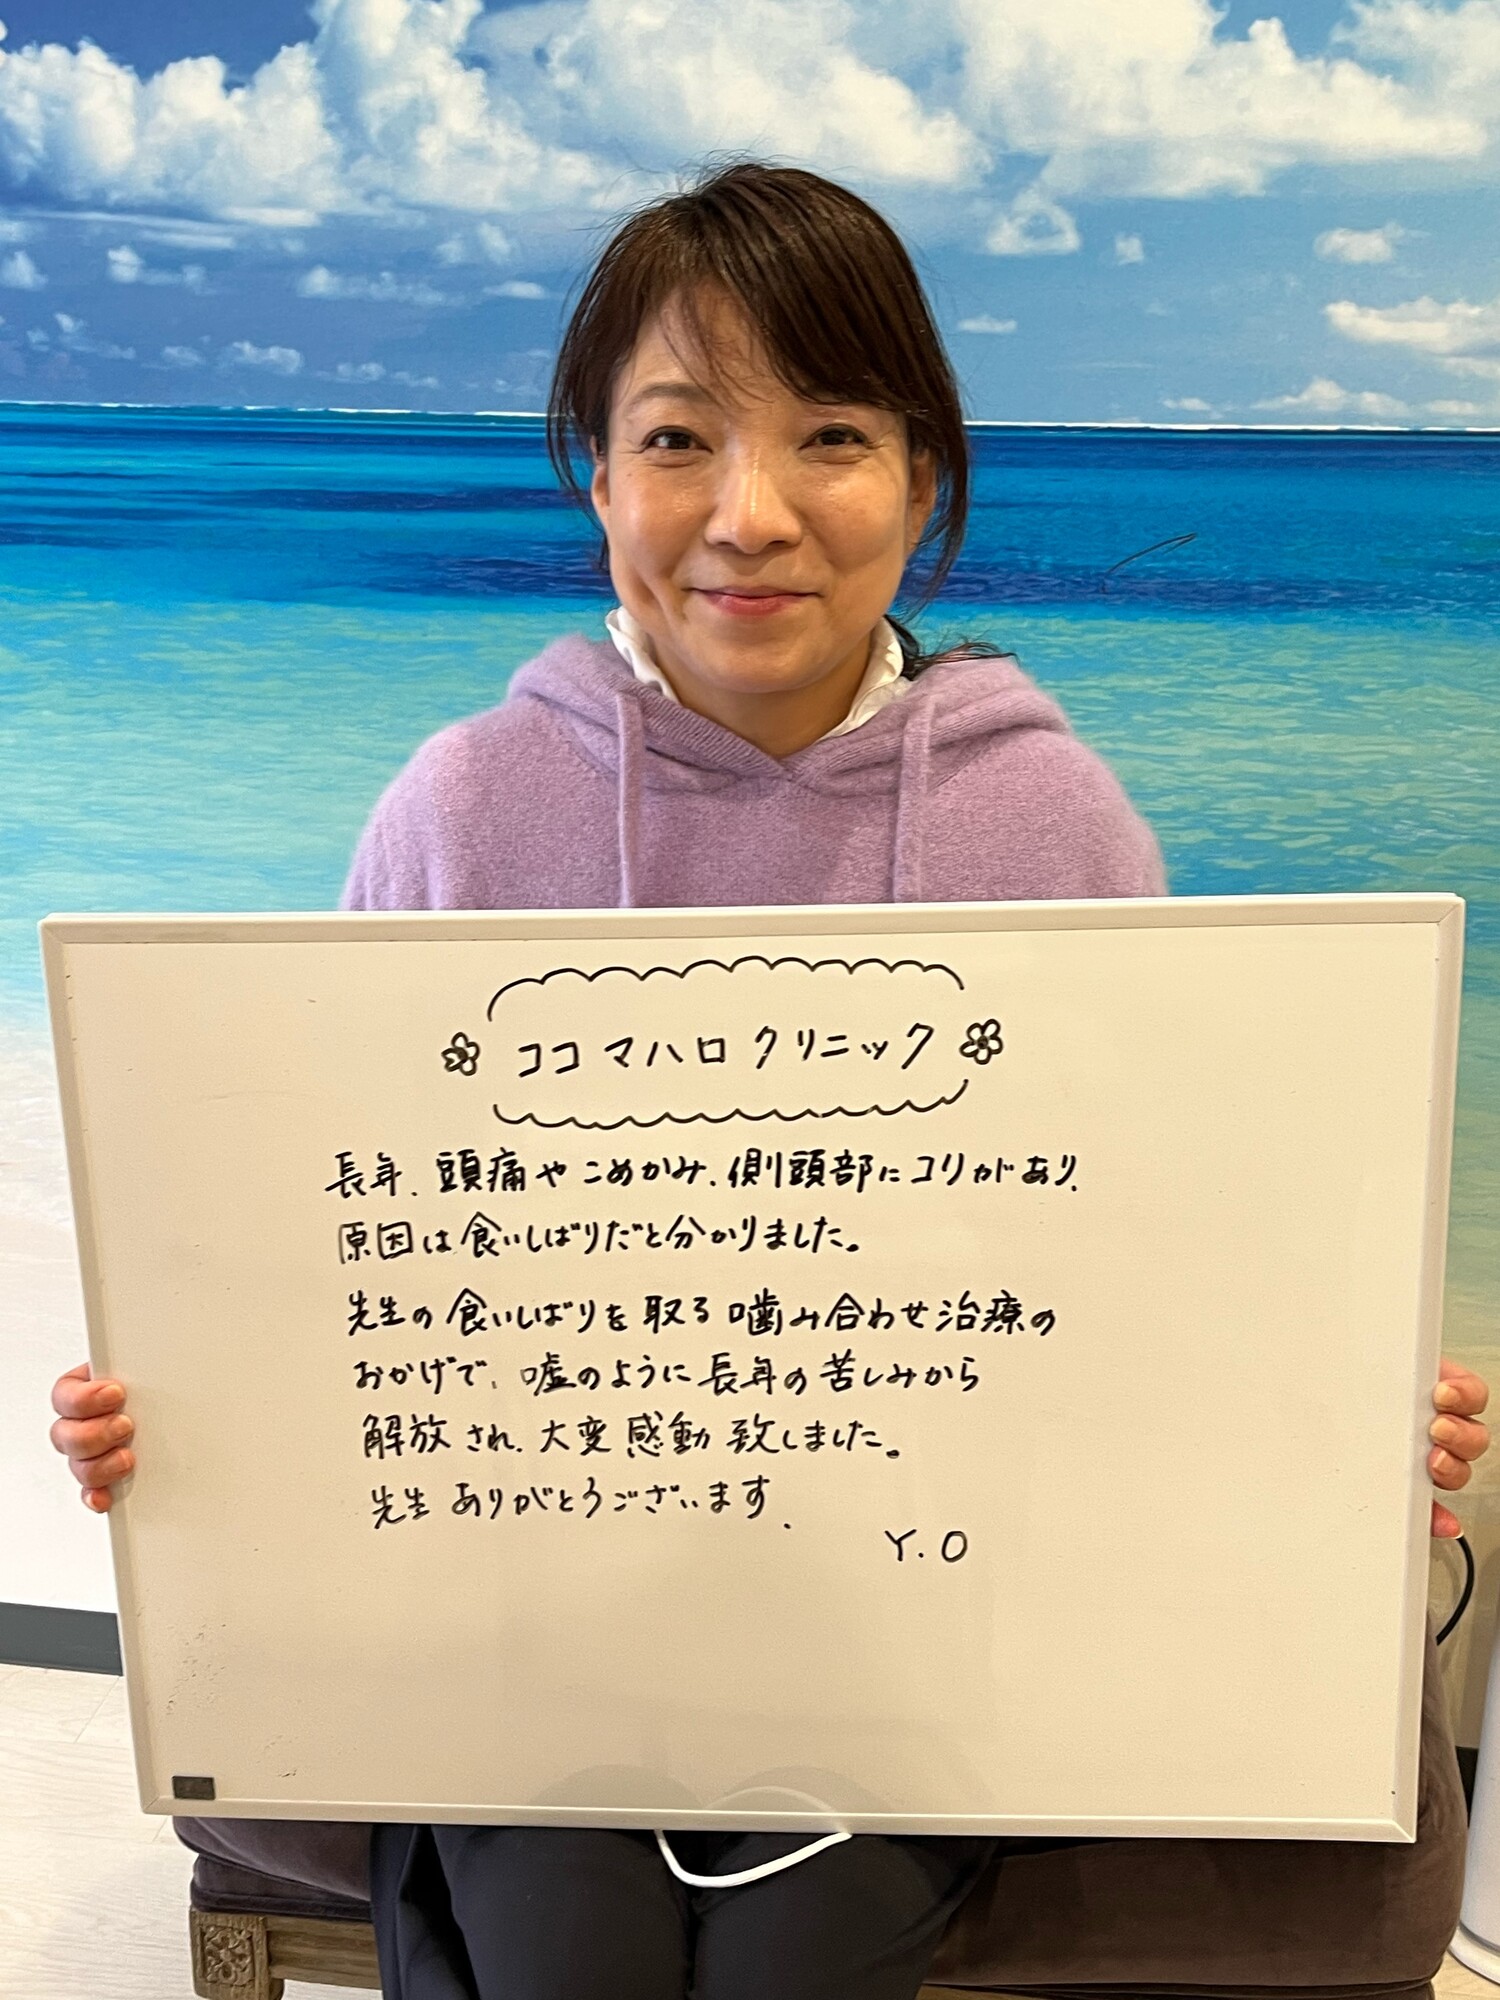 ココマハロクリニック
長年、頭痛やこめかみ、側頭部にコリがあり、
原因は食いしばりだと分かりました。
先生の食いしばりを取る噛み合わせ治療の
おかげで、嘘のように長年の苦しみから
解放され、大変感動致しました。
先生ありがとうございます.
Y.O